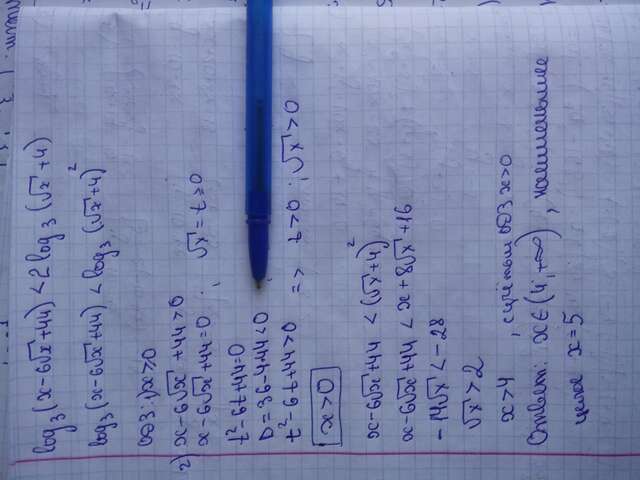 log₃(x-6√x+44)<2log₃(√x+4)
log₃(x-6√x+44)<log₃(√x+4)²
ОДЗ: 1) x≥0
2) x-6√x+44>0
x-6√x+44=0 ; √x=t≥0
t²-6t+44=0
D=36-4·44<0
t²-6t+44>0 => t>0 ; √x>0
x>0
x-6√x+44<(√x+4)²
x-6√x+44<x+8√x+16
-14√x<-28
√x>2
x>4 , с учётом ОДЗ x>0
Ответ: x∈(4;+∞) , наименьшее
целое x=5